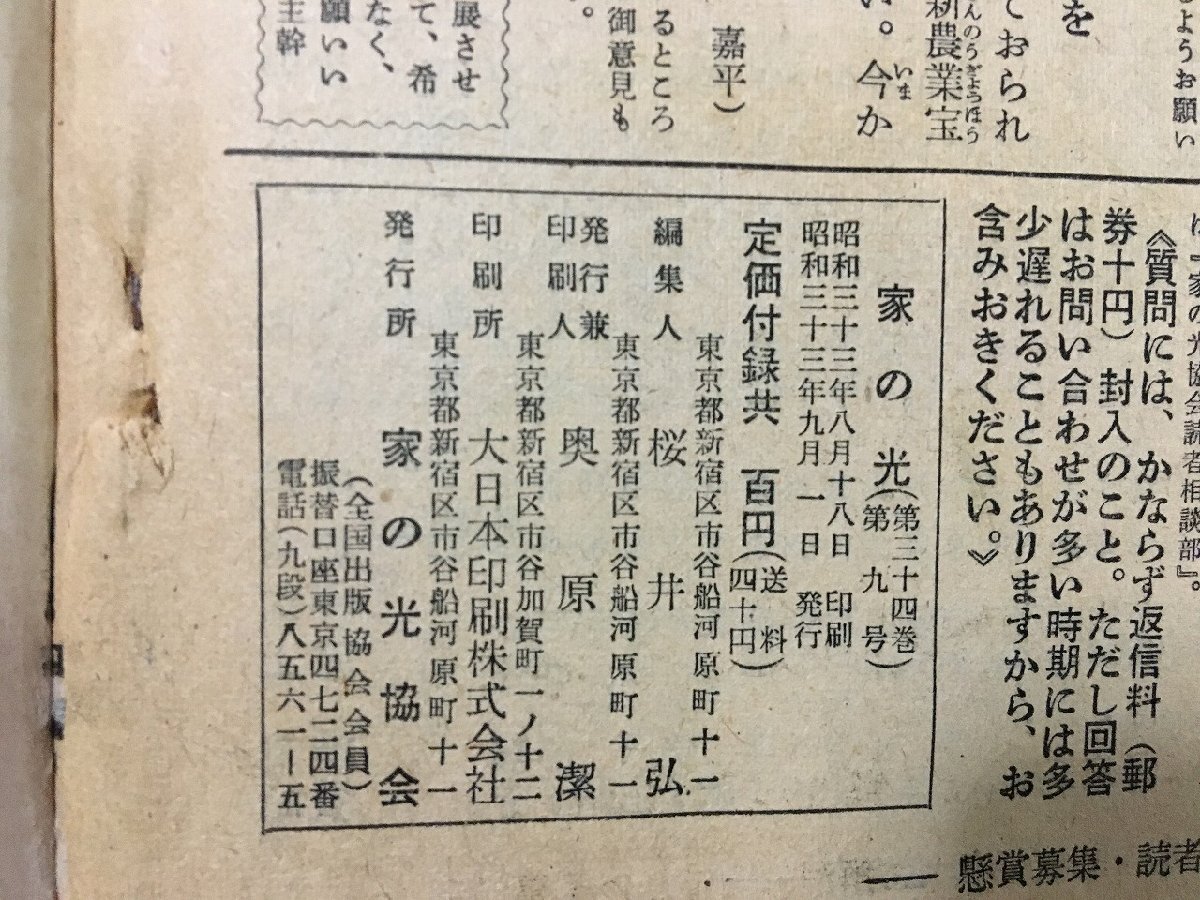 しようお願い
ておられ
を
新農業宝
んのうぎょうほう
い。今か
いま
嘉平）
るところ
御意見も
。
展させ
て、希
なく、
願いい
主幹
は『家の光協会読者相談部』。
《質問には、かならず返信料（郵
券十円）封入のこと。ただし回答
はお問い合わせが多い時期には多
少遅れることもありますから、お
含みおきください。》
家の光（第三十四巻
第九号）
昭和三十三年八月十八日 印刷
昭和三十三年九月一日 発行
定価付録共 百円（送料
四十円）
東京都新宿区市谷船河原町十一
編集人 桜井弘
東京都新宿区市谷船河原町十一
発行兼
印刷人 奥原潔
東京都新宿区市谷加賀町一ノ十二
印刷所 大日本印刷株式会社
東京都新宿区市谷船河原町十一
発行所 家の光協会
（全国出版協会会員）
振替口座東京四七二四番
電話（九段）八五六一－五
懸賞募集・読者